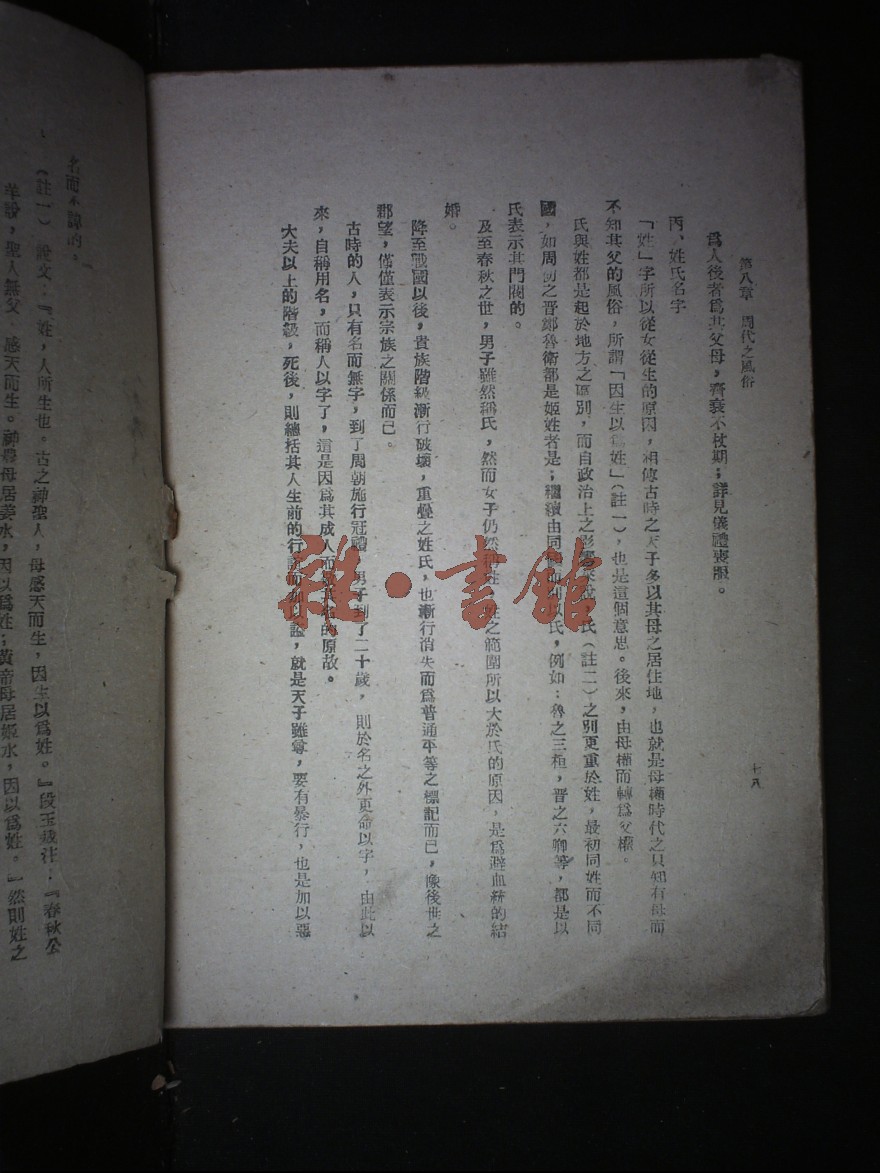 第八章　周代之風俗
十八
爲人後者爲其父母，齊衰不杖期；詳見儀禮喪服。
丙、姓氏名字
「姓」字所以從女從生的原因，相傳古時之天子多以其母之居住地，也就是母權時代之只知有母而
不知其父的風俗，所謂「因生以爲姓」（註一），也是這個意思。後來，由母權而轉爲父權。
氏與姓都是起於地方之區別，而自政治上之影響來說，氏（註二）之別更重於姓，最初同姓而不同
國，如周初之晋鄭魯衛都是姬姓者是；繼續由同國而別以氏，例如：魯之三桓，晋之六卿等，都是以
氏表示其門閥的。
及至春秋之世，男子雖然稱氏，然而女子仍然稱姓，姓之範圍所以大於氏的原因，是爲避血統的結
婚。
降至戰國以後，貴族階級漸行破壞，重疊之姓氏，也漸行消失而爲普通平等之標記而已，像後世之
郡望，僅僅表示宗族之關係而已。
古時的人，只有名而無字，到了周朝施行冠禮，男子到了二十歲，則於名之外更命以字，由此以
來，自稱用名，而稱人以字了，這是因爲其成人而敬其名的原故。
大夫以上的階級，死後，則總括其人生前的行　而　以謚，就是天子雖尊，要有暴行，也是加以惡
名而不諱的。
（註一）說文：『姓，人所生也。古之神聖人，母感天而生，因生以爲姓。』段玉裁注：『春秋公
羊說，聖人無父，感天而生。神農母居姜水，因以爲姓；黃帝母居姬水，因以爲姓。』然則姓之
雜·書館